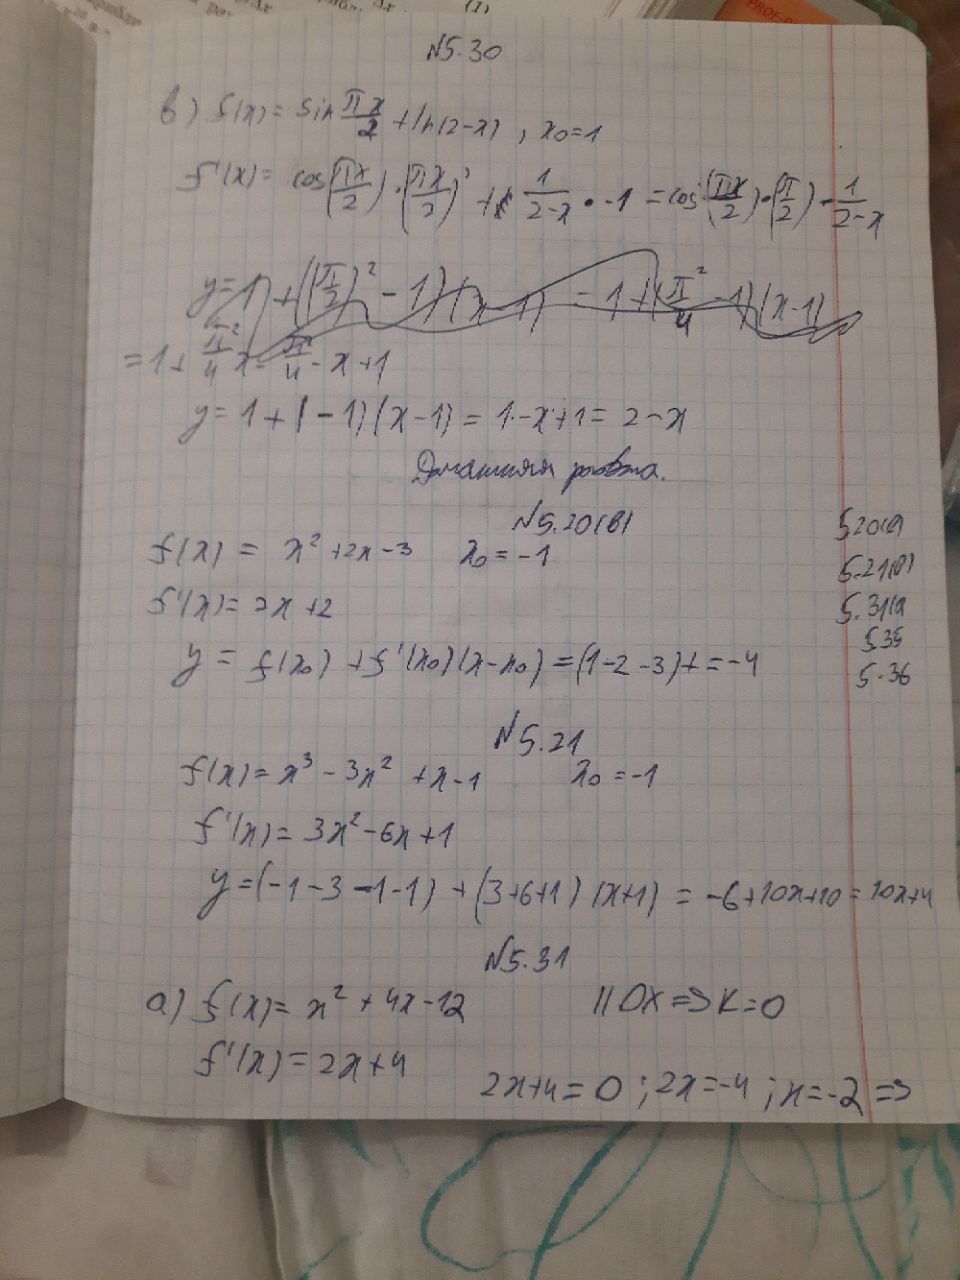 N5.30
в) f(x) = sin πx/2 + ln(2-x), x₀=1
f'(x) = cos(πx/2)·(πx/2)' + 1/(2-x) · -1 = cos(πx/2)·(π/2) - 1/(2-x)
y = 1 + ((π/2)² - 1)(x-1) = 1 + (π²/4 - 1)(x-1)
= 1 + π²/4 x - π²/4 - x + 1
y = 1 + (-1)(x-1) = 1-x+1 = 2-x
Домашняя работа.
N5.20(в)
f(x) = x² + 2x - 3 x₀ = -1
f'(x) = 2x + 2
y = f(x₀) + f'(x₀)(x-x₀) = (1-2-3)+ = -4
5.35
5.36
N5.21
f(x) = x³ - 3x² + x - 1 x₀ = -1
f'(x) = 3x² - 6x + 1
y = (-1-3-1-1) + (3+6+1)(x+1) = -6+10x+10 = 10x+4
N5.31
а) f(x) = x² + 4x - 12 || OX => K=0
f'(x) = 2x + 4
2x+4 = 0 ; 2x = -4 ; x = -2 =>